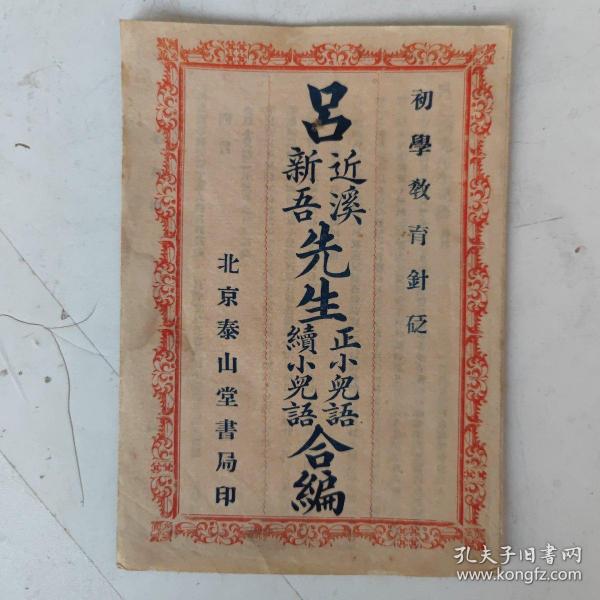 初學教育針砭
呂近溪新吾先生正小兒語續小兒語合編
北京泰山堂書局印
孔夫子旧书网
www.kongfz.com